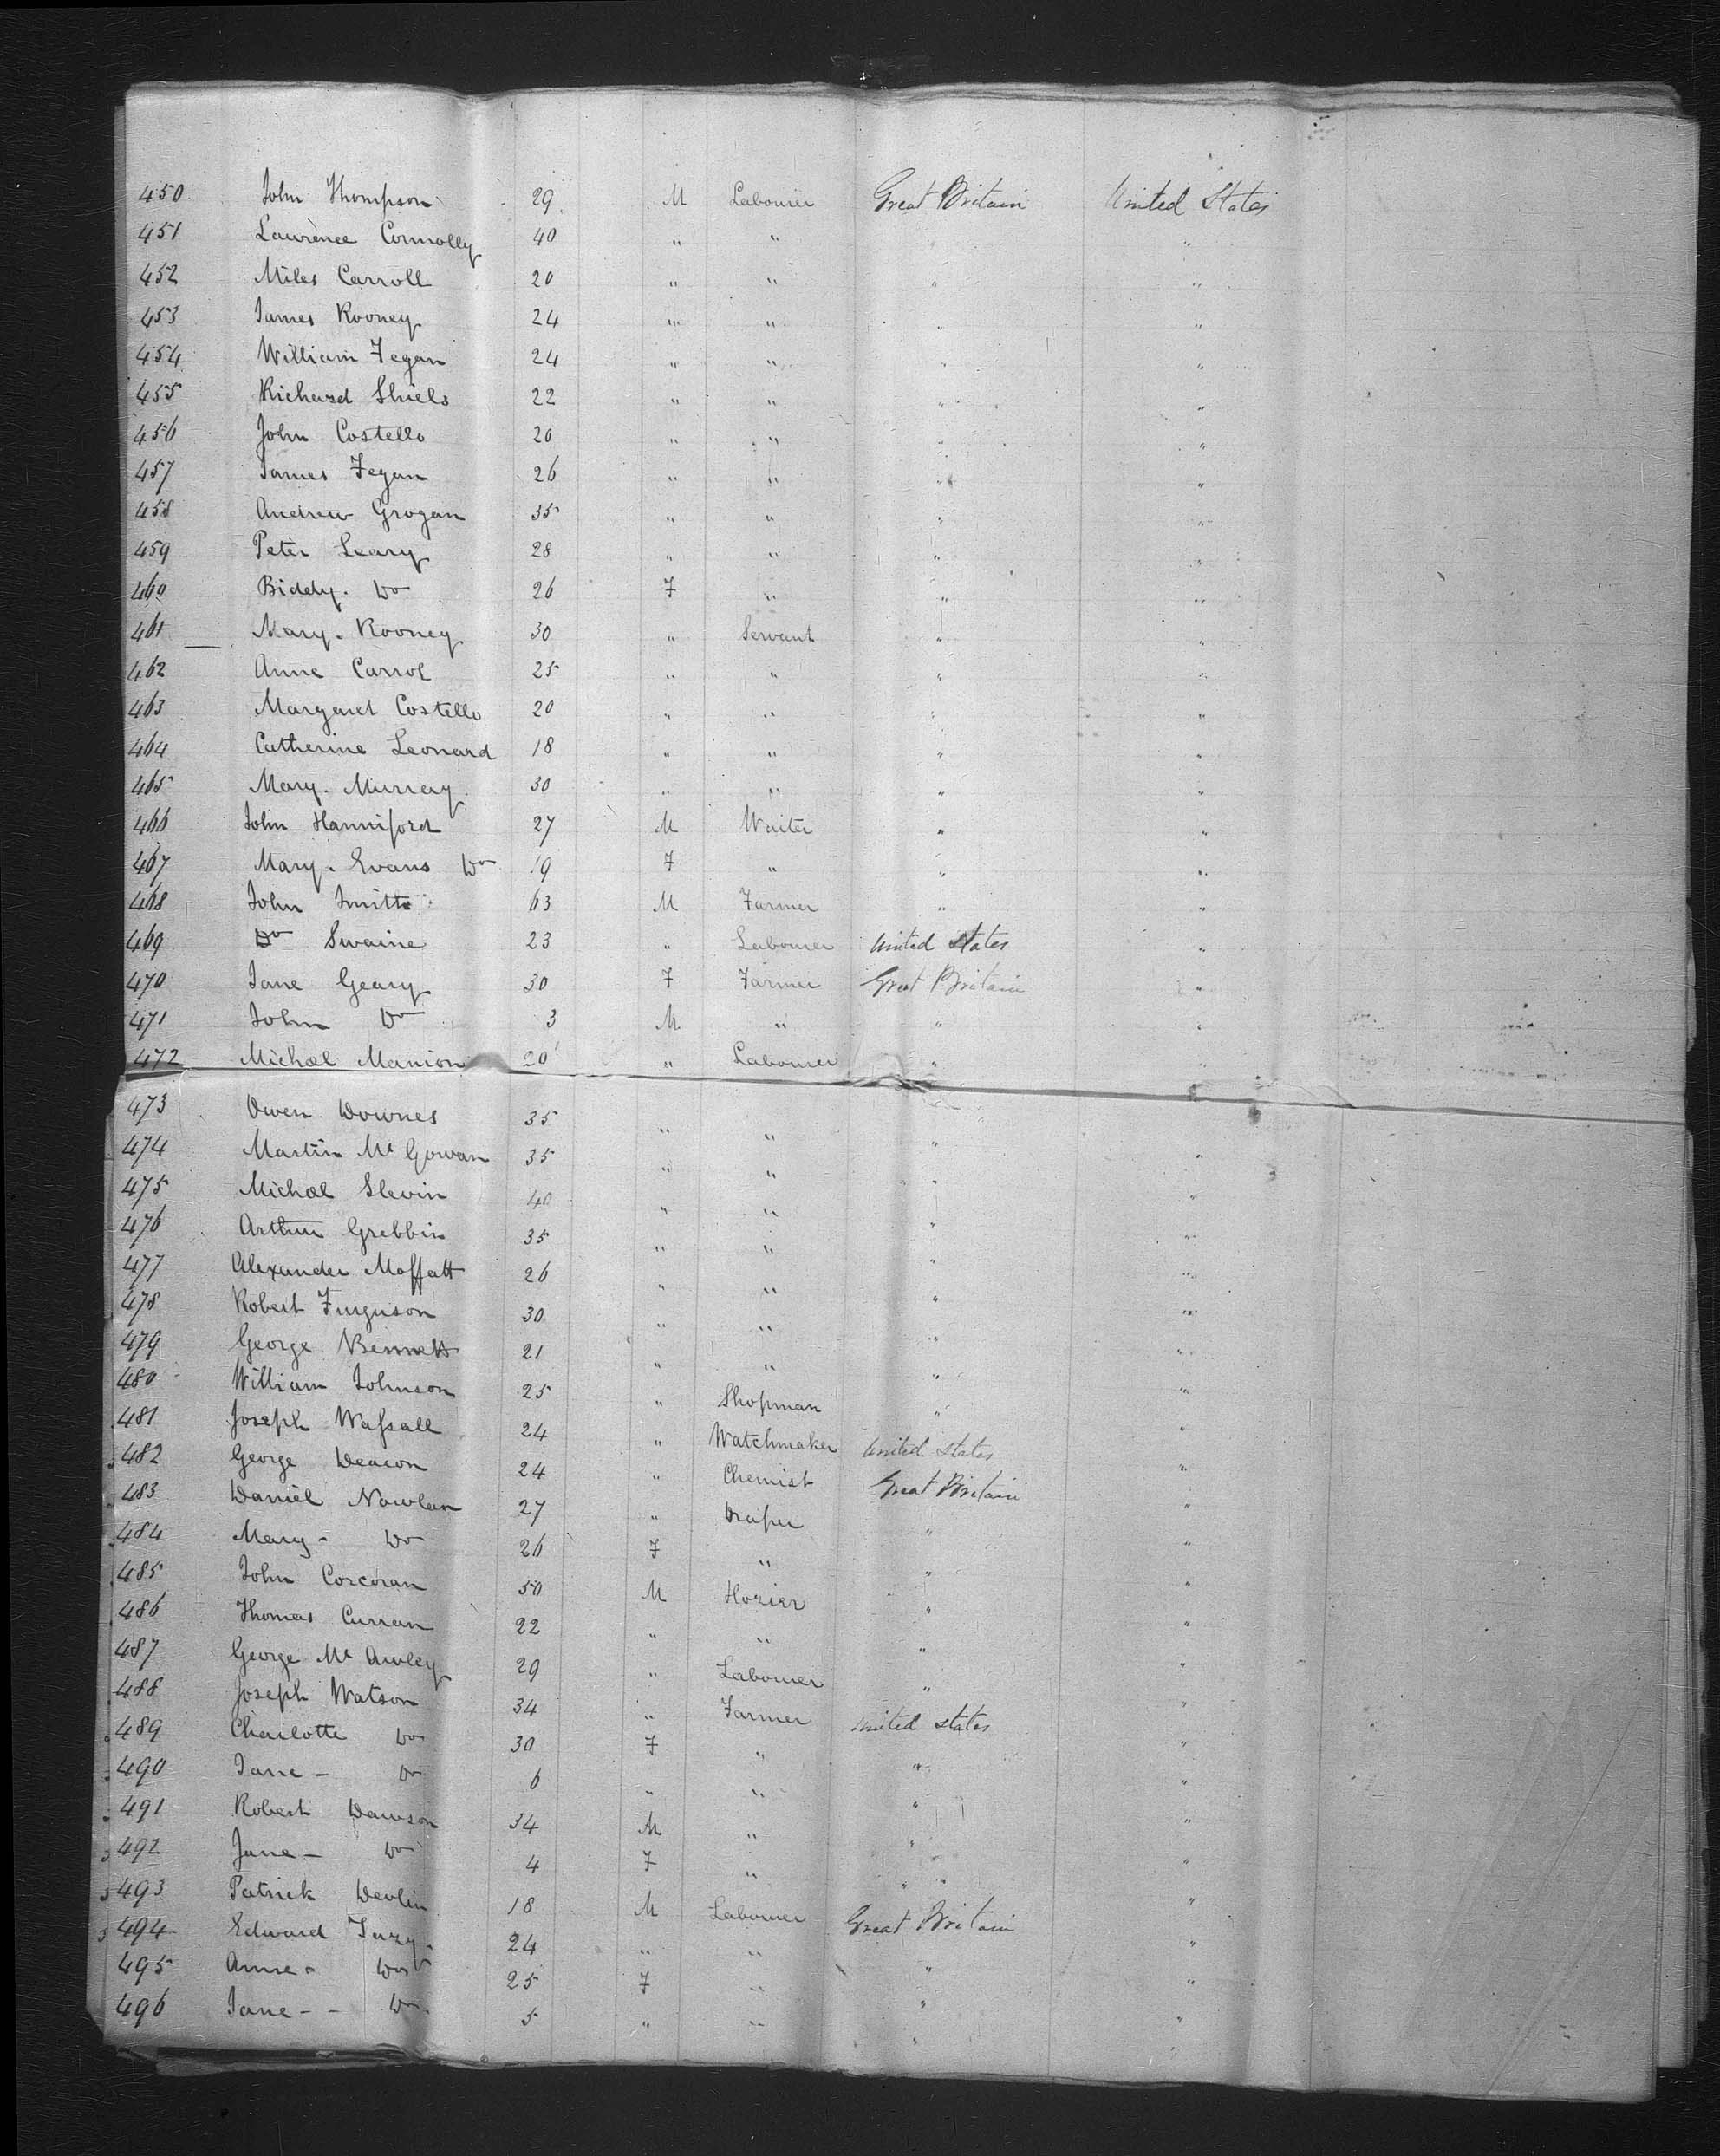 450 John Thompson 29 M Labourer Great Britain United States
451 Laurence Connolly 40 " " "
452 Miles Carroll 20 " " " "
453 James Rooney 24 " " " "
454 William Fegan 24 " " " "
455 Richard Shiels 22 " " " "
456 John Costello 20 " " " "
457 James Fegan 26 " " " "
458 Andrew Grogan 35 " " " "
459 Peter Leary 28 " " " "
460 Biddy. Do 26 F " " "
461 Mary. Rooney 30 " Servant " "
462 Anne Carrol 25 " " " "
463 Margaret Costello 20 " " " "
464 Catherine Leonard 18 " " " "
465 Mary. Murray 30 " " " "
466 John Hanniford 27 M Waiter " "
467 Mary. Evans Do 19 F " " "
468 John Smith 63 M Farmer " "
469 Do Swaine 23 " Labourer United States "
470 Jane Geary 30 F Farmer Great Britain "
471 John Do 3 M " " "
472 Michael Manion 20 " Labourer " "
473 Owen Downes 35 " " "
474 Martin Mc Gowan 35 " " " "
475 Michael Slevin 40 " " " "
476 Arthur Grebbin 35 " " " "
477 Alexander Moffatt 26 " " " "
478 Robert Furguson 30 " " " "
479 George Bennett 21 " " " "
480 William Johnson 25 " Shopman " "
481 Joseph Wafsall 24 " Watchmaker United States "
482 George Deacon 24 " Chemist Great Britain "
483 Daniel Nowlan 27 " Draper " "
484 Mary - Do 26 F " " "
485 John Corcoran 50 M Hozier " "
486 Thomas Curran 22 " " " "
487 George Mc Auley 29 " Labourer " "
488 Joseph Watson 34 " Farmer United States "
489 Charlotte Do 30 F " " "
490 Jane - Do 6 " " " "
491 Robert Dawson 34 M " " "
492 Jane - Do 4 F " " "
493 Patrick Devlin 18 M Labourer Great Britain "
494 Edward Fury 24 " " " "
495 Anne - Do 25 F " " "
496 Jane - - Do. 5 " " "